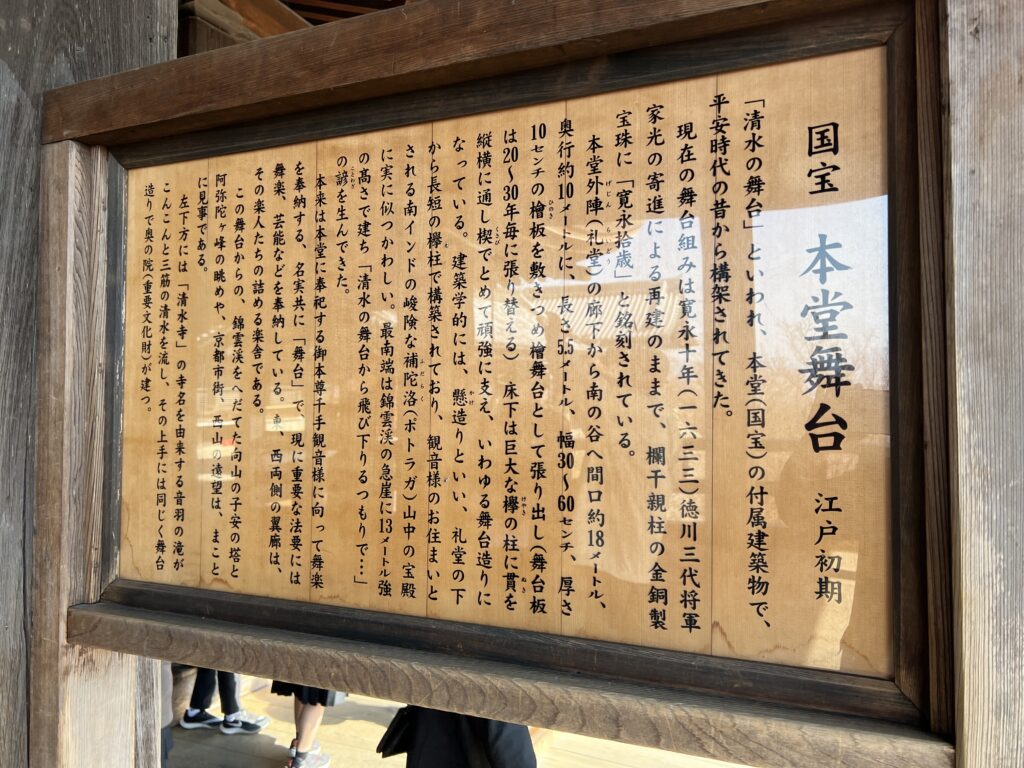 国宝 本堂舞台 江戸初期
「清水の舞台」といわれ、本堂(国宝)の付属建築物で、
平安時代の昔から構架されてきた。
現在の舞台組みは寛永十年(一六三三)徳川三代将軍
家光の寄進による再建のままで、欄干親柱の金銅製
宝珠に「寛永拾歳」と銘刻されている。
本堂外陣(礼堂)の廊下から南の谷へ間口約18メートル、
奥行約10メートルに、長さ5.5メートル、幅30〜60センチ、厚さ
10センチの檜板を敷きつめ檜舞台として張り出し(舞台板
は20〜30年毎に張り替える)床下は巨大な欅の柱に貫を
縦横に通し楔でとめて頑強に支え、いわゆる舞台造りに
なっている。建築学的には、懸造りといい、礼堂の下
から長短の欅柱で構築されており、観音様のお住まいと
される南インドの峻険な補陀洛(ポトラガ)山中の宝殿
に実に似つかわしい。最南端は錦雲渓の急崖に13メートル強
の高さで建ち「清水の舞台から飛び下りるつもりで…」
の諺を生んできた。
本来は本堂に奉祀する御本尊千手観音様に向って舞楽
を奉納する、名実共に「舞台」で、現に重要な法要には
舞楽、芸能などを奉納している。東、西両側の翼廊は、
その楽人たちの詰める楽舎である。
この舞台からの、錦雲渓をへだてた向山の子安の塔と
阿弥陀ヶ峰の眺めや、京都市街、西山の遠望は、まこと
に見事である。
左下方には「清水寺」の寺名を由来する音羽の滝が
こんこんと三筋の清水を流し、その上手には同じく舞台
造りで奥の院(重要文化財)が建つ。